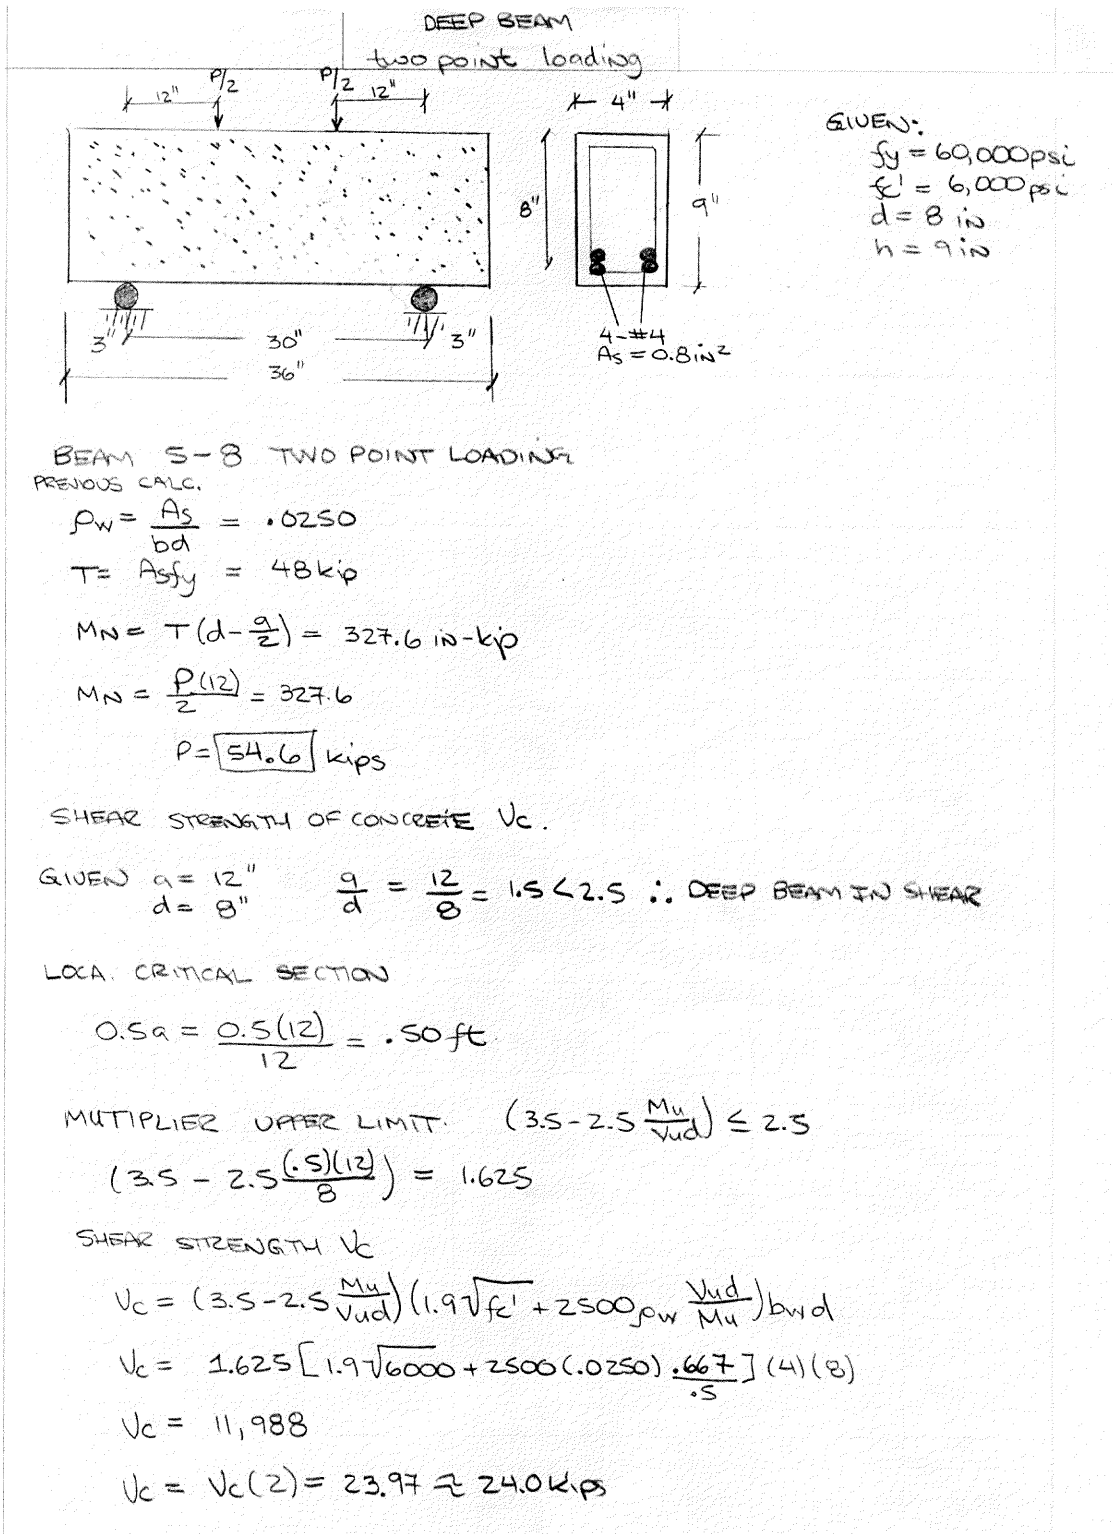 DEEP BEAM
two point loading
12" P/2 P/2 12"
4"
8"
9"
GIVEN:
fy = 60,000 psi
fc' = 6,000 psi
d = 8 in
h = 9 in
3" 30" 3"
36"
4-#4
As = 0.8 in²
BEAM S-8 TWO POINT LOADING
PREVIOUS CALC.
ρw = As/bd = .0250
T = Asfy = 48 kip
MN = T(d - a/2) = 327.6 IN-kip
MN = P(12)/2 = 327.6
P = 54.6 kips
SHEAR STRENGTH OF CONCRETE Vc.
GIVEN a = 12" a/d = 12/8 = 1.5 < 2.5 ∴ DEEP BEAM IN SHEAR
d = 8"
LOCA. CRITICAL SECTION
0.5a = 0.5(12)/12 = .50 ft
MUTIPLIER UPPER LIMIT. (3.5 - 2.5 Mu/Vud) ≤ 2.5
(3.5 - 2.5 (.5)(12)/8) = 1.625
SHEAR STRENGTH Vc
Vc = (3.5 - 2.5 Mu/Vud)(1.9√fc' + 2500ρw Vud/Mu)bwd
Vc = 1.625[1.9√6000 + 2500(.0250) .667/.5](4)(8)
Vc = 11,988
Vc = Vc(2) = 23.97 ≈ 24.0 kips